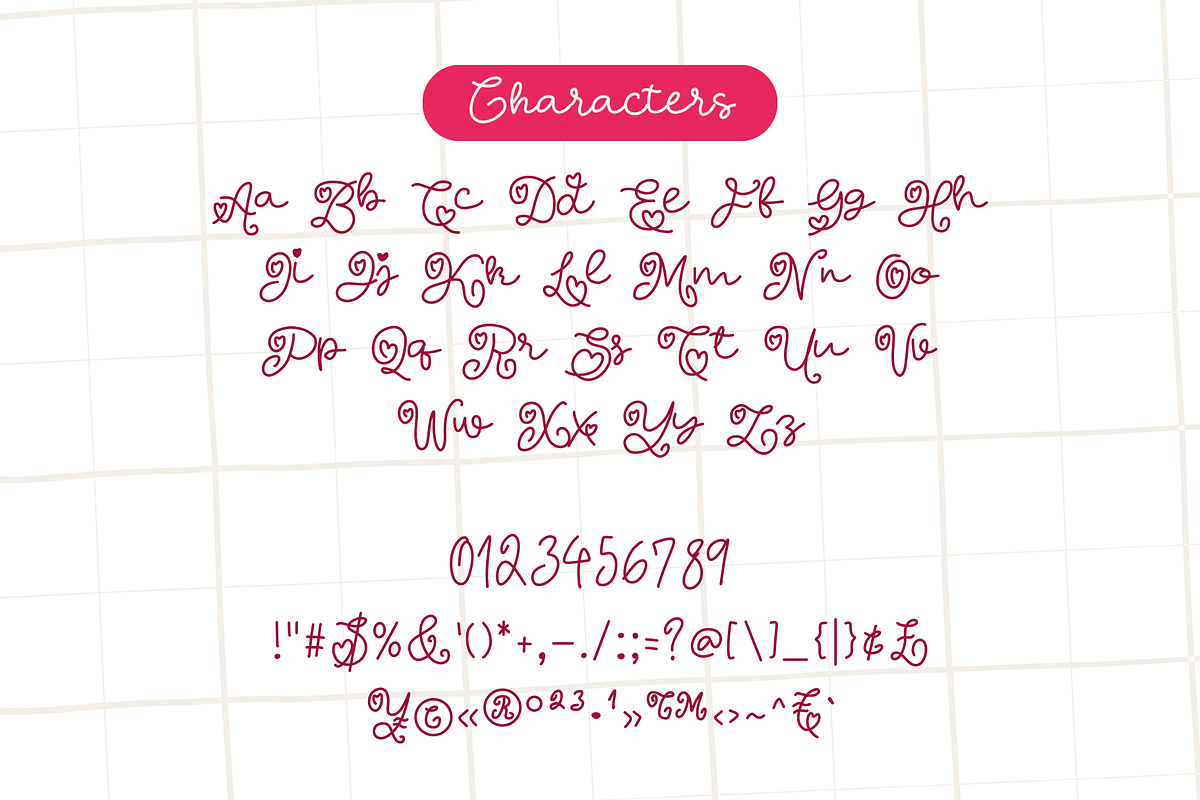 Characters
Aa Bb Cc Dd Ee Ff Gg Hh
Ii Jj Kk Ll Mm Nn Oo
Pp Qq Rr Ss Tt Uu Vv
Ww Xx Yy Zz
0123456789
!"#$%&'()*+,–./:;=?@[\]_{|}¢£
¥©«®°²³·¹»™‹›~^€`